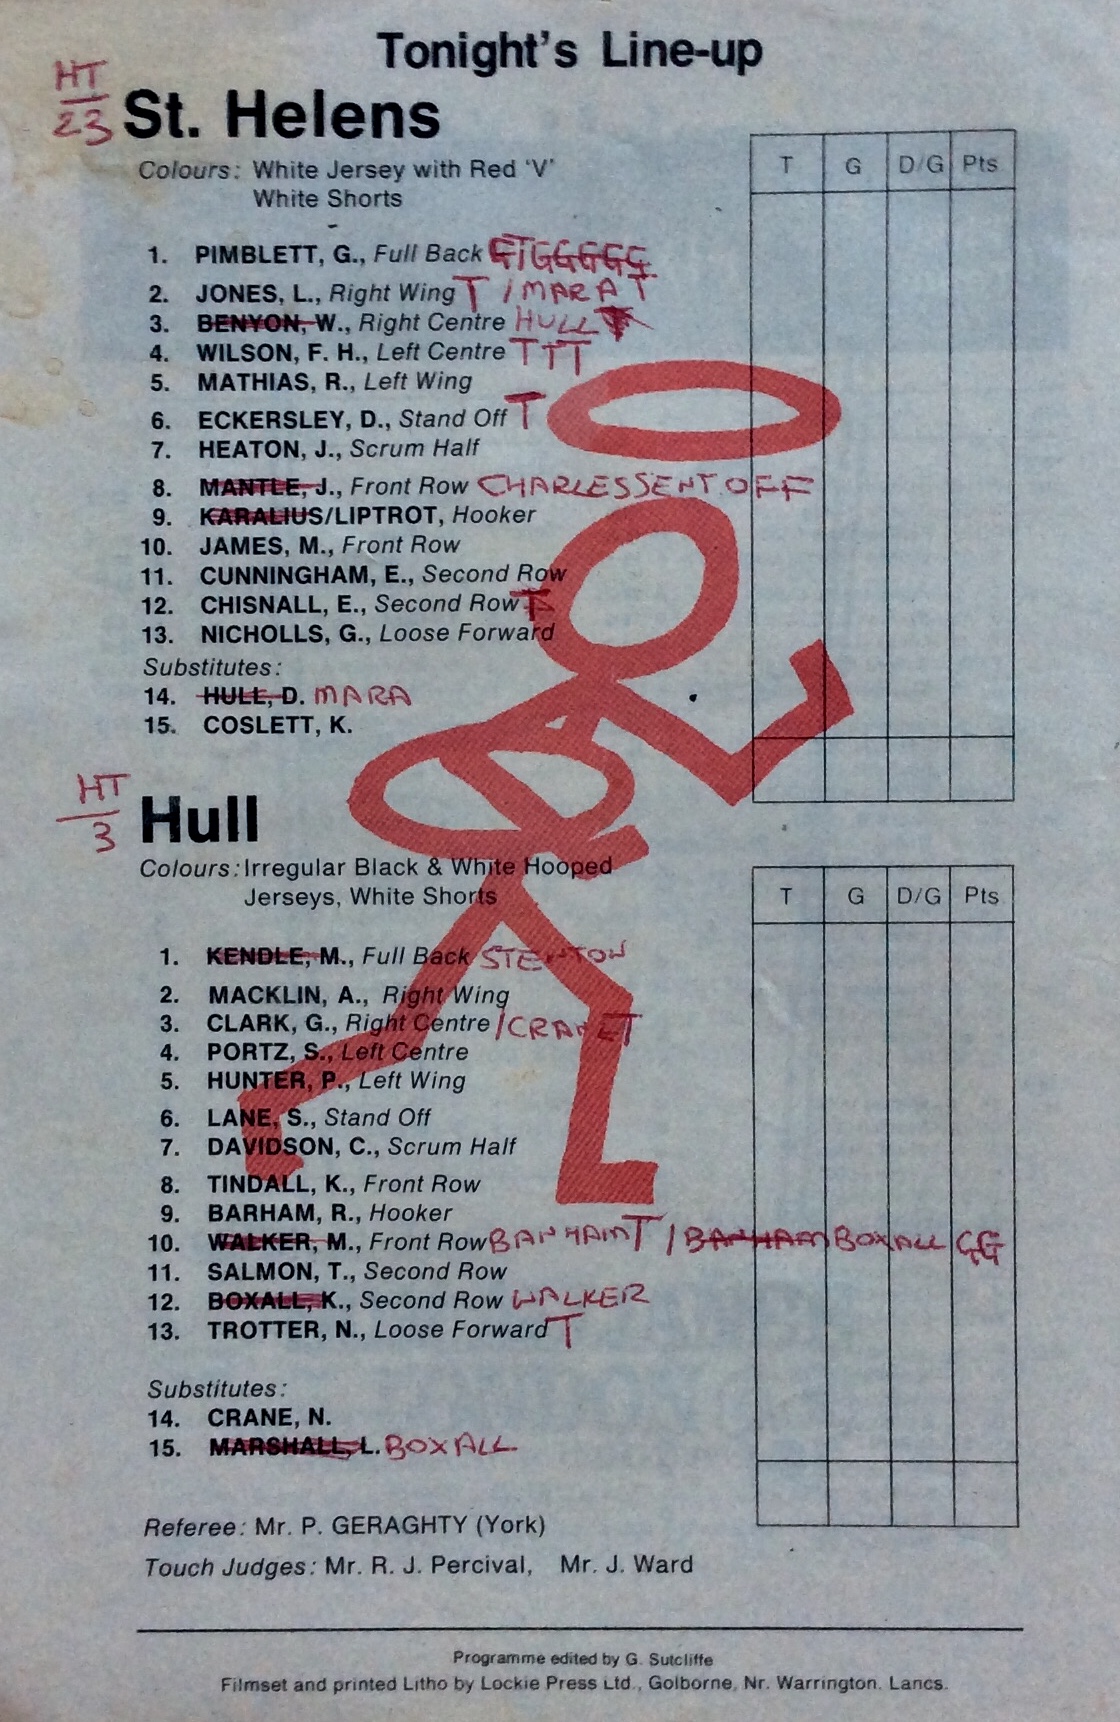 Tonight's Line-up
HT
23
St. Helens
Colours: White Jersey with Red 'V'
White Shorts
T G D/G Pts
1. PIMBLETT, G., Full Back
2. JONES, L., Right Wing T / MARA T
3. BENYON, W., Right Centre HULL
4. WILSON, F. H., Left Centre T T T
5. MATHIAS, R., Left Wing
6. ECKERSLEY, D., Stand Off T
7. HEATON, J., Scrum Half
8. MANTLE, J., Front Row CHARLES SENT OFF
9. KARALIUS/LIPTROT, Hooker
10. JAMES, M., Front Row
11. CUNNINGHAM, E., Second Row
12. CHISNALL, E., Second Row T
13. NICHOLLS, G., Loose Forward
Substitutes:
14. HULL, D. MARA
15. COSLETT, K.
HT
3
Hull
Colours: Irregular Black & White Hooped
Jerseys, White Shorts
T G D/G Pts
1. KENDLE, M., Full Back STENTON
2. MACKLIN, A., Right Wing
3. CLARK, G., Right Centre / CRANE T
4. PORTZ, S., Left Centre
5. HUNTER, P., Left Wing
6. LANE, S., Stand Off
7. DAVIDSON, C., Scrum Half
8. TINDALL, K., Front Row
9. BARHAM, R., Hooker
10. WALKER, M., Front Row BANHAM T / BANHAM BOXALL GG
11. SALMON, T., Second Row
12. BOXALL, K., Second Row WALKER
13. TROTTER, N., Loose Forward T
Substitutes:
14. CRANE, N.
15. MARSHALL, L. BOXALL
Referee: Mr. P. GERAGHTY (York)
Touch Judges: Mr. R. J. Percival, Mr. J. Ward
Programme edited by G. Sutcliffe
Filmset and printed Litho by Lockie Press Ltd., Golborne, Nr. Warrington. Lancs.